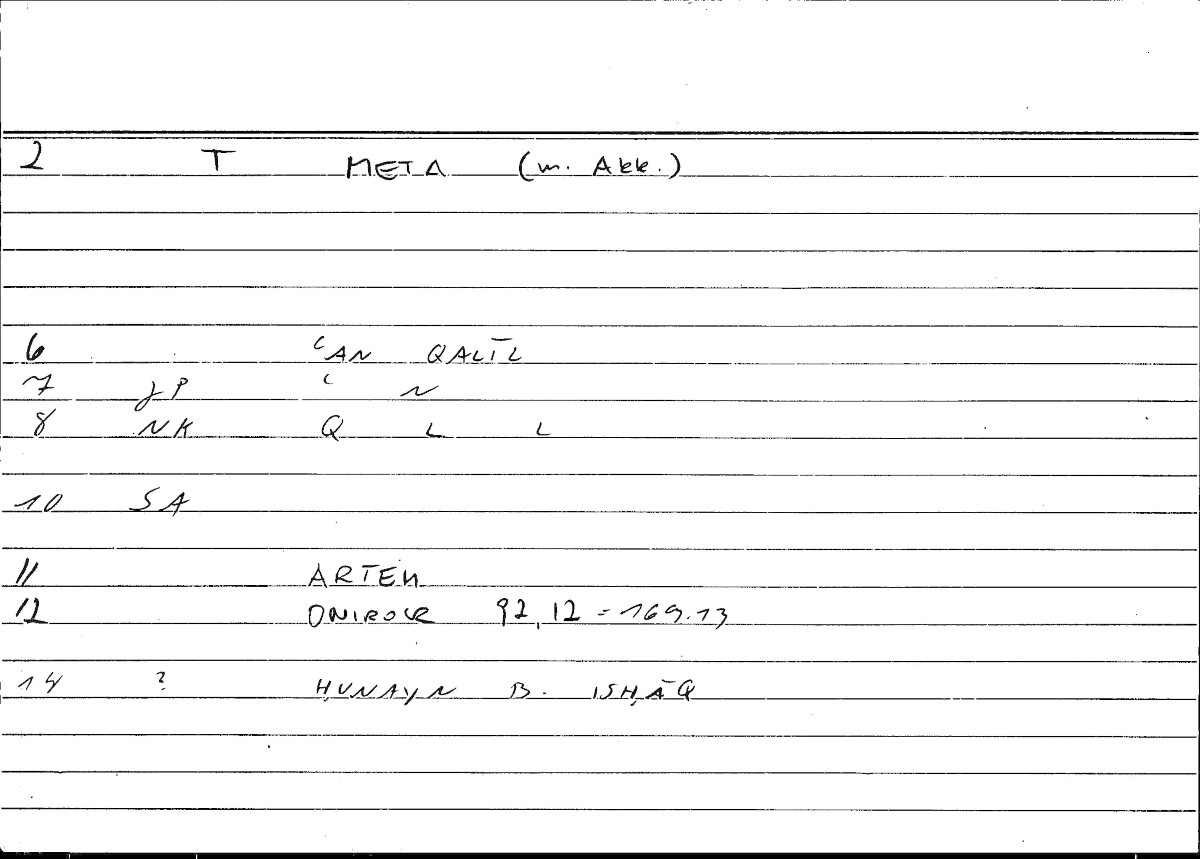 2 T META (m. Akk.)
6 ʿAN QALĪL
7 JP ʿ N
8 NK Q L L
10 SA
11 ARTEM
12 ONIROCR 92,12 = 169.13
14 ? ḤUNAYN B. ISḤĀQ